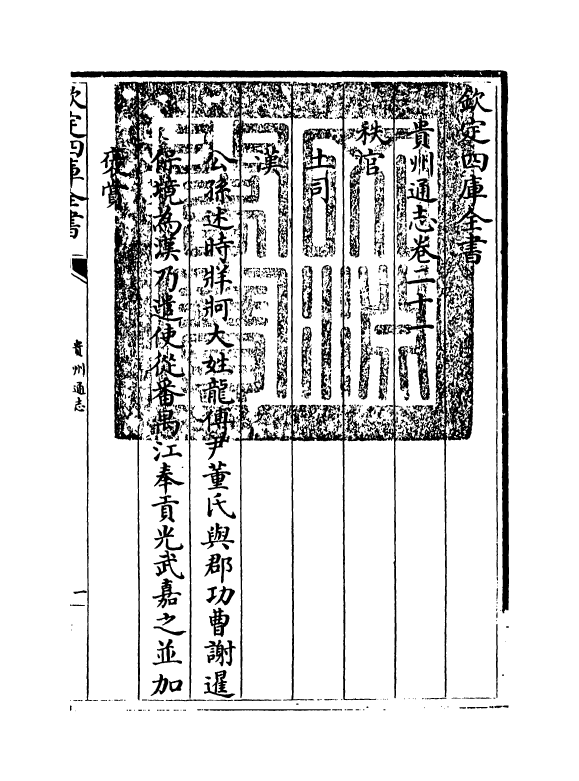 欽定四庫全書
貴州通志卷二十一
秩官
土司
漢
公孫述時牂牁大姓龍傅尹董氏與郡功曹謝暹
保境為漢乃遣使從番禺江奉貢光武嘉之並加
褒賞
欽定四庫全書
貴州通志
一